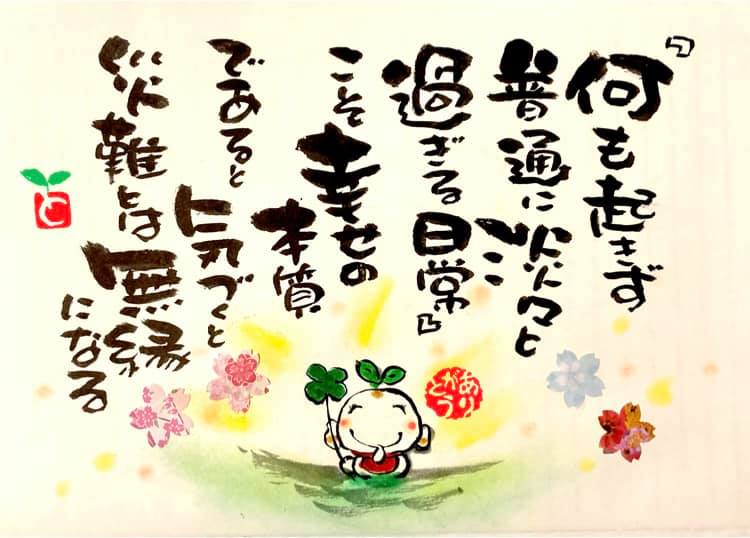 「何も起きず
普通に淡々と
過ぎる日常」
こそ幸せの
本質
であると
気づくと
災難とは無縁
になる
ありがとう